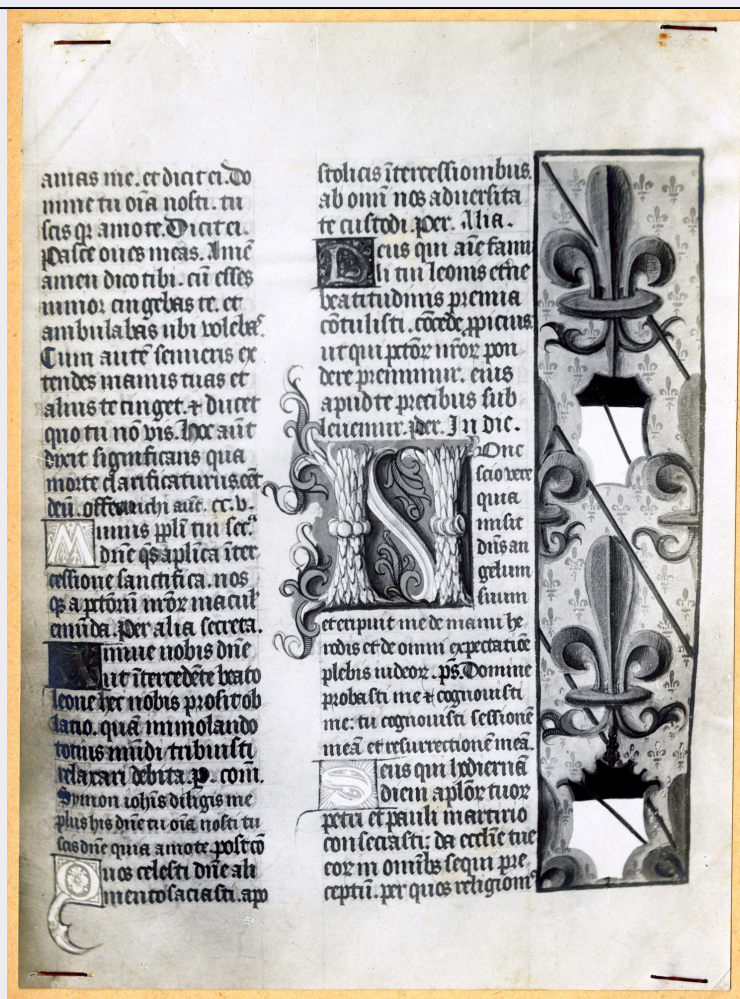 amas me. et dicit ei. Do
mine tu oīa nosti. tu
scis qꝛ amo te. Dicit ei.
Pasce oues meas. Amē
amen dico tibi. cū esses
iunior cingebas te. et
ambulabas ubi voleba᷒.
Cum autē senueris ex
tendes manus tuas et
alius te cinget. ⁊ ducet
quo tu nō vis. hoc aūt
dixit significans qua
morte clarificaturus eēt
deū. offerenda. cc. v.
Munus ppl̄i tui
dn̄e qs̄ apl̄ica īter
cessione sanctifica. nos
qꝫ a pctōrū nr̄oꝝ macul᷒
emūda. Per alia secreta.
Annue nobis dn̄e
ut ītercedēte beato
leone hec nobis prosit ob
latio. quā immolando
totius mūdi tribuisti
relaxari debita. p. com̄.
Symon iohīs diligis me
plus his dn̄e tu oīa nosti tu
scis dn̄e quia amo te. postcō
Quos celesti dn̄e ali
mento saciasti. apo
stolicis ītercessionibus.
ab omni nos aduersita
te custodi. Per. Alia.
Deus qui aīe famu
li tui leonis etne
beatitudinis premia
cōtulisti. cōcede ꝓpicius
ut qui pctōꝝ nr̄oꝝ pon
dere premimur. eius
apud te precibus sub
leuemur. per. In die.
Nunc
scio vere
quia
misit
dn̄s an
gelum
suum
et eripuit me de manu he
rodis et de omni expectatiōe
plebis iudeoꝝ. ps̄. Domine
probasti me ⁊ cognouisti
me: tu cognouisti sessionē
meā et resurrectionē meā.
Deus qui hodiernā
diem apl̄oꝝ tuoꝝ
petri et pauli martirio
consecrasti: da eccl̄ie tue
eoꝝ in omībꝫ sequi pre
ceptū. per quos religionis